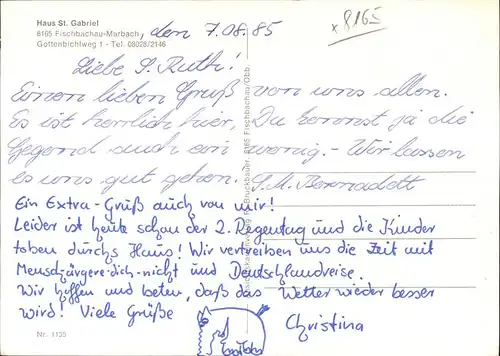 Haus St. Gabriel
8165 Fischbachau-Marbach, den 7.08.85
Gottenbichlweg 1 - Tel. 08028/2146
x 8165
Liebe S. Ruth!
Einen lieben Gruß von uns allen.
Es ist herrlich hier, Du kennst ja die
Gegend auch ein wenig. - Wir lassen
es uns gut gehen. S. M. Bernadett
Ein Extra-Gruß auch von mir!
Leider ist heute schon der 2. Regentag und die Kinder
toben durchs Haus! Wir vertreiben uns die Zeit mit
Mensch-ärgere-dich-nicht und Deutschlandreise.
Wir hoffen und beten, daß das Wetter wieder besser
wird! Viele Grüße
Christina
Nr. 1135
Bruckbauer, 8165 Fischbachau/Obb.